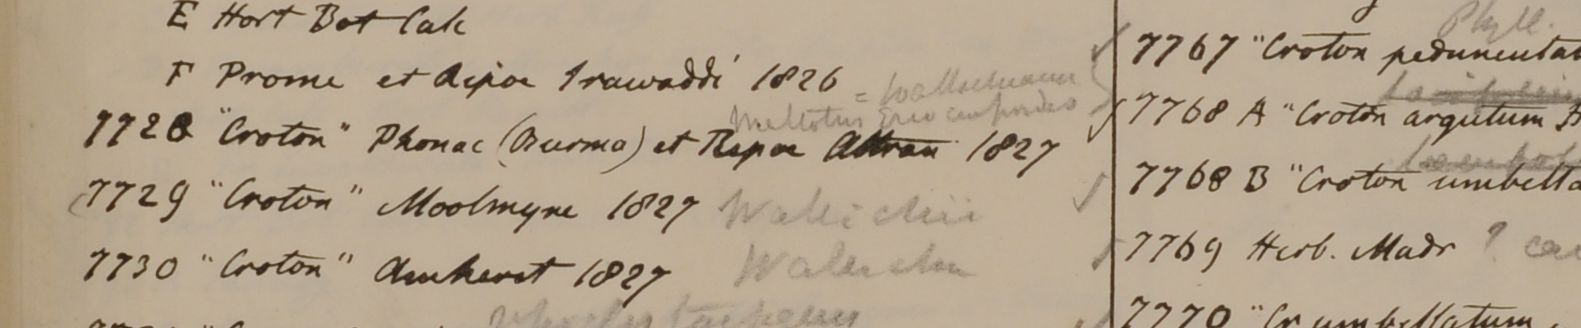 E Hort Bot Calc
F Prome et Ripae Irawaddi 1826
= Wallichiana
7728 "Croton" Phonac (Burma) et Ripae Attran 1827
7729 "Croton" Moolmyne 1827 Wallichii
7730 "Croton" Amherst 1827
Phyll.
7767 "Croton peduncula
7768 A "Croton argutum H
7768 B "Croton umbella
7769 Herb. Madr ?
7770 "Cr umbellatum